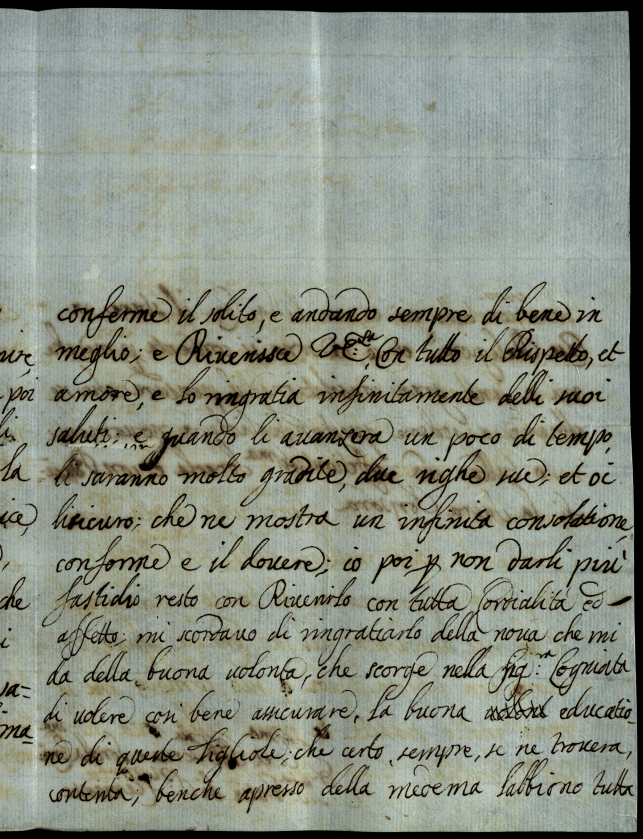 conferme il solito, e andando sempre di bene in
meglio; e Riverissce V.E.za Con tutto il Rispetto, et
amore, e lo ringratia infinitamente delli suoi
saluti; e quando li avanzera un poco di tempo,
li saranno molto gradite, due righe sue; et
che ne mostra un infinita consolatione,
conforme e il dovere; io poi p non darli più
fastidio resto con Riverirlo con tutta Cordialità ed
affetto; mi scordavo di ringratiarlo della nova che mi
da della buona volontà, che scorge nella Sig.ra Cogniata
di volere cosi bene assicurare, la buona educatio
ne di queste figliole; che certo sempre, se ne trovera,
contenta; benche apresso della medema l'abbiono tutta
uire,
poi
la
ice,
che
i
sa=
ma